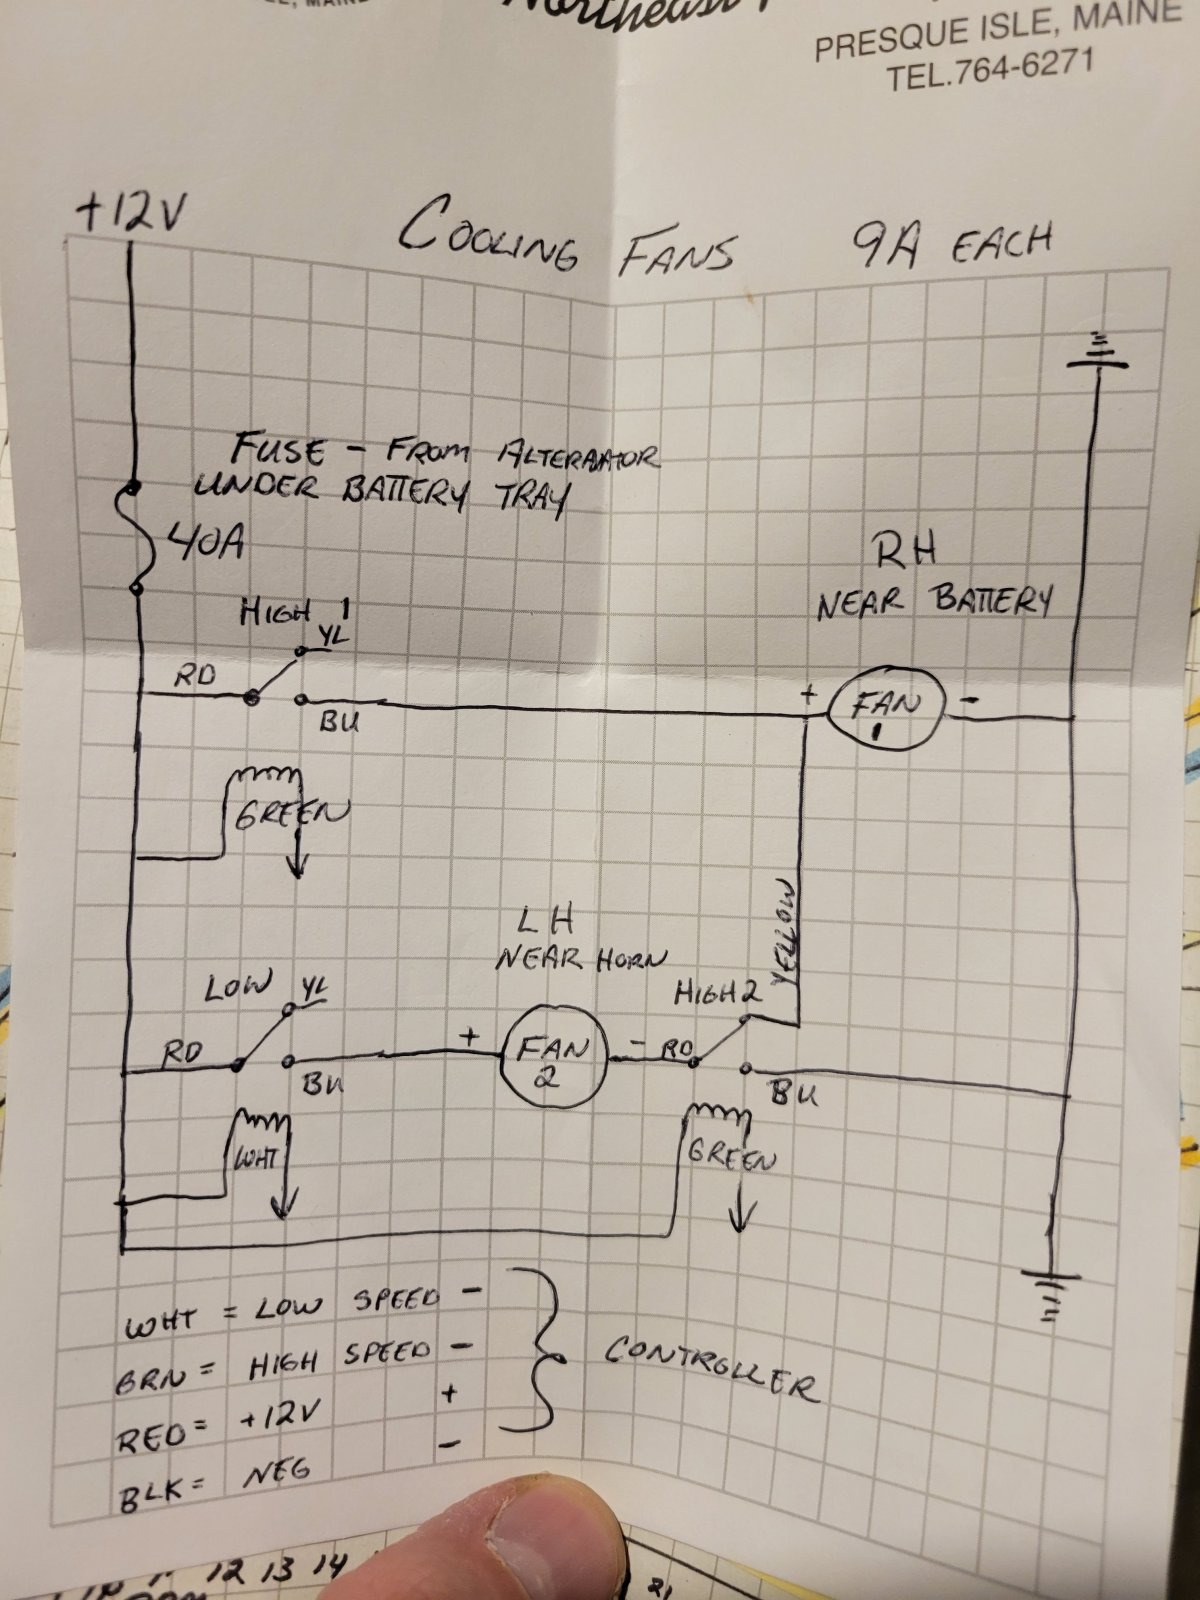 MAINE
Northeast
PRESQUE ISLE, MAINE
TEL.764-6271
+12V
COOLING FANS 9A EACH
FUSE - FROM ALTERNATOR
UNDER BATTERY TRAY
40A
RH
NEAR BATTERY
HIGH 1
YL
RD
BU
+ FAN 1 -
GREEN
LH
NEAR HORN
YELLOW
LOW YL
HIGH 2
RD
BU
+ FAN 2 - RD
BU
WHT
GREEN
WHT = LOW SPEED -
GRN = HIGH SPEED -
RED = +12V +
BLK = NEG -
CONTROLLER
12 13 14
21